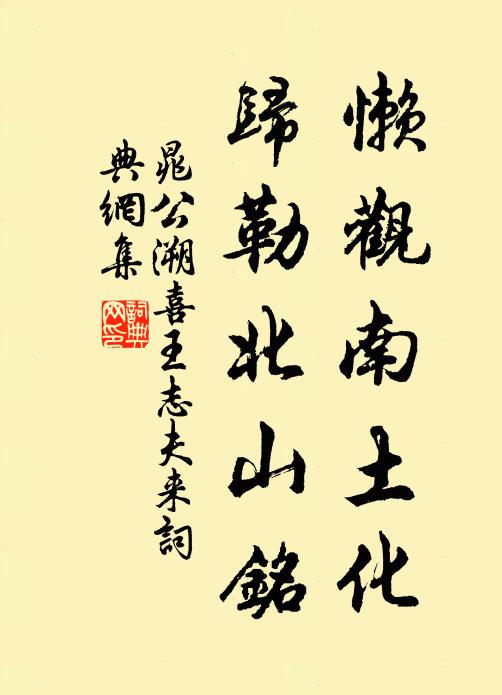 懶觀南土化
歸勒北山銘
晁公溯喜王志夫来詞
典網集
詞典網印